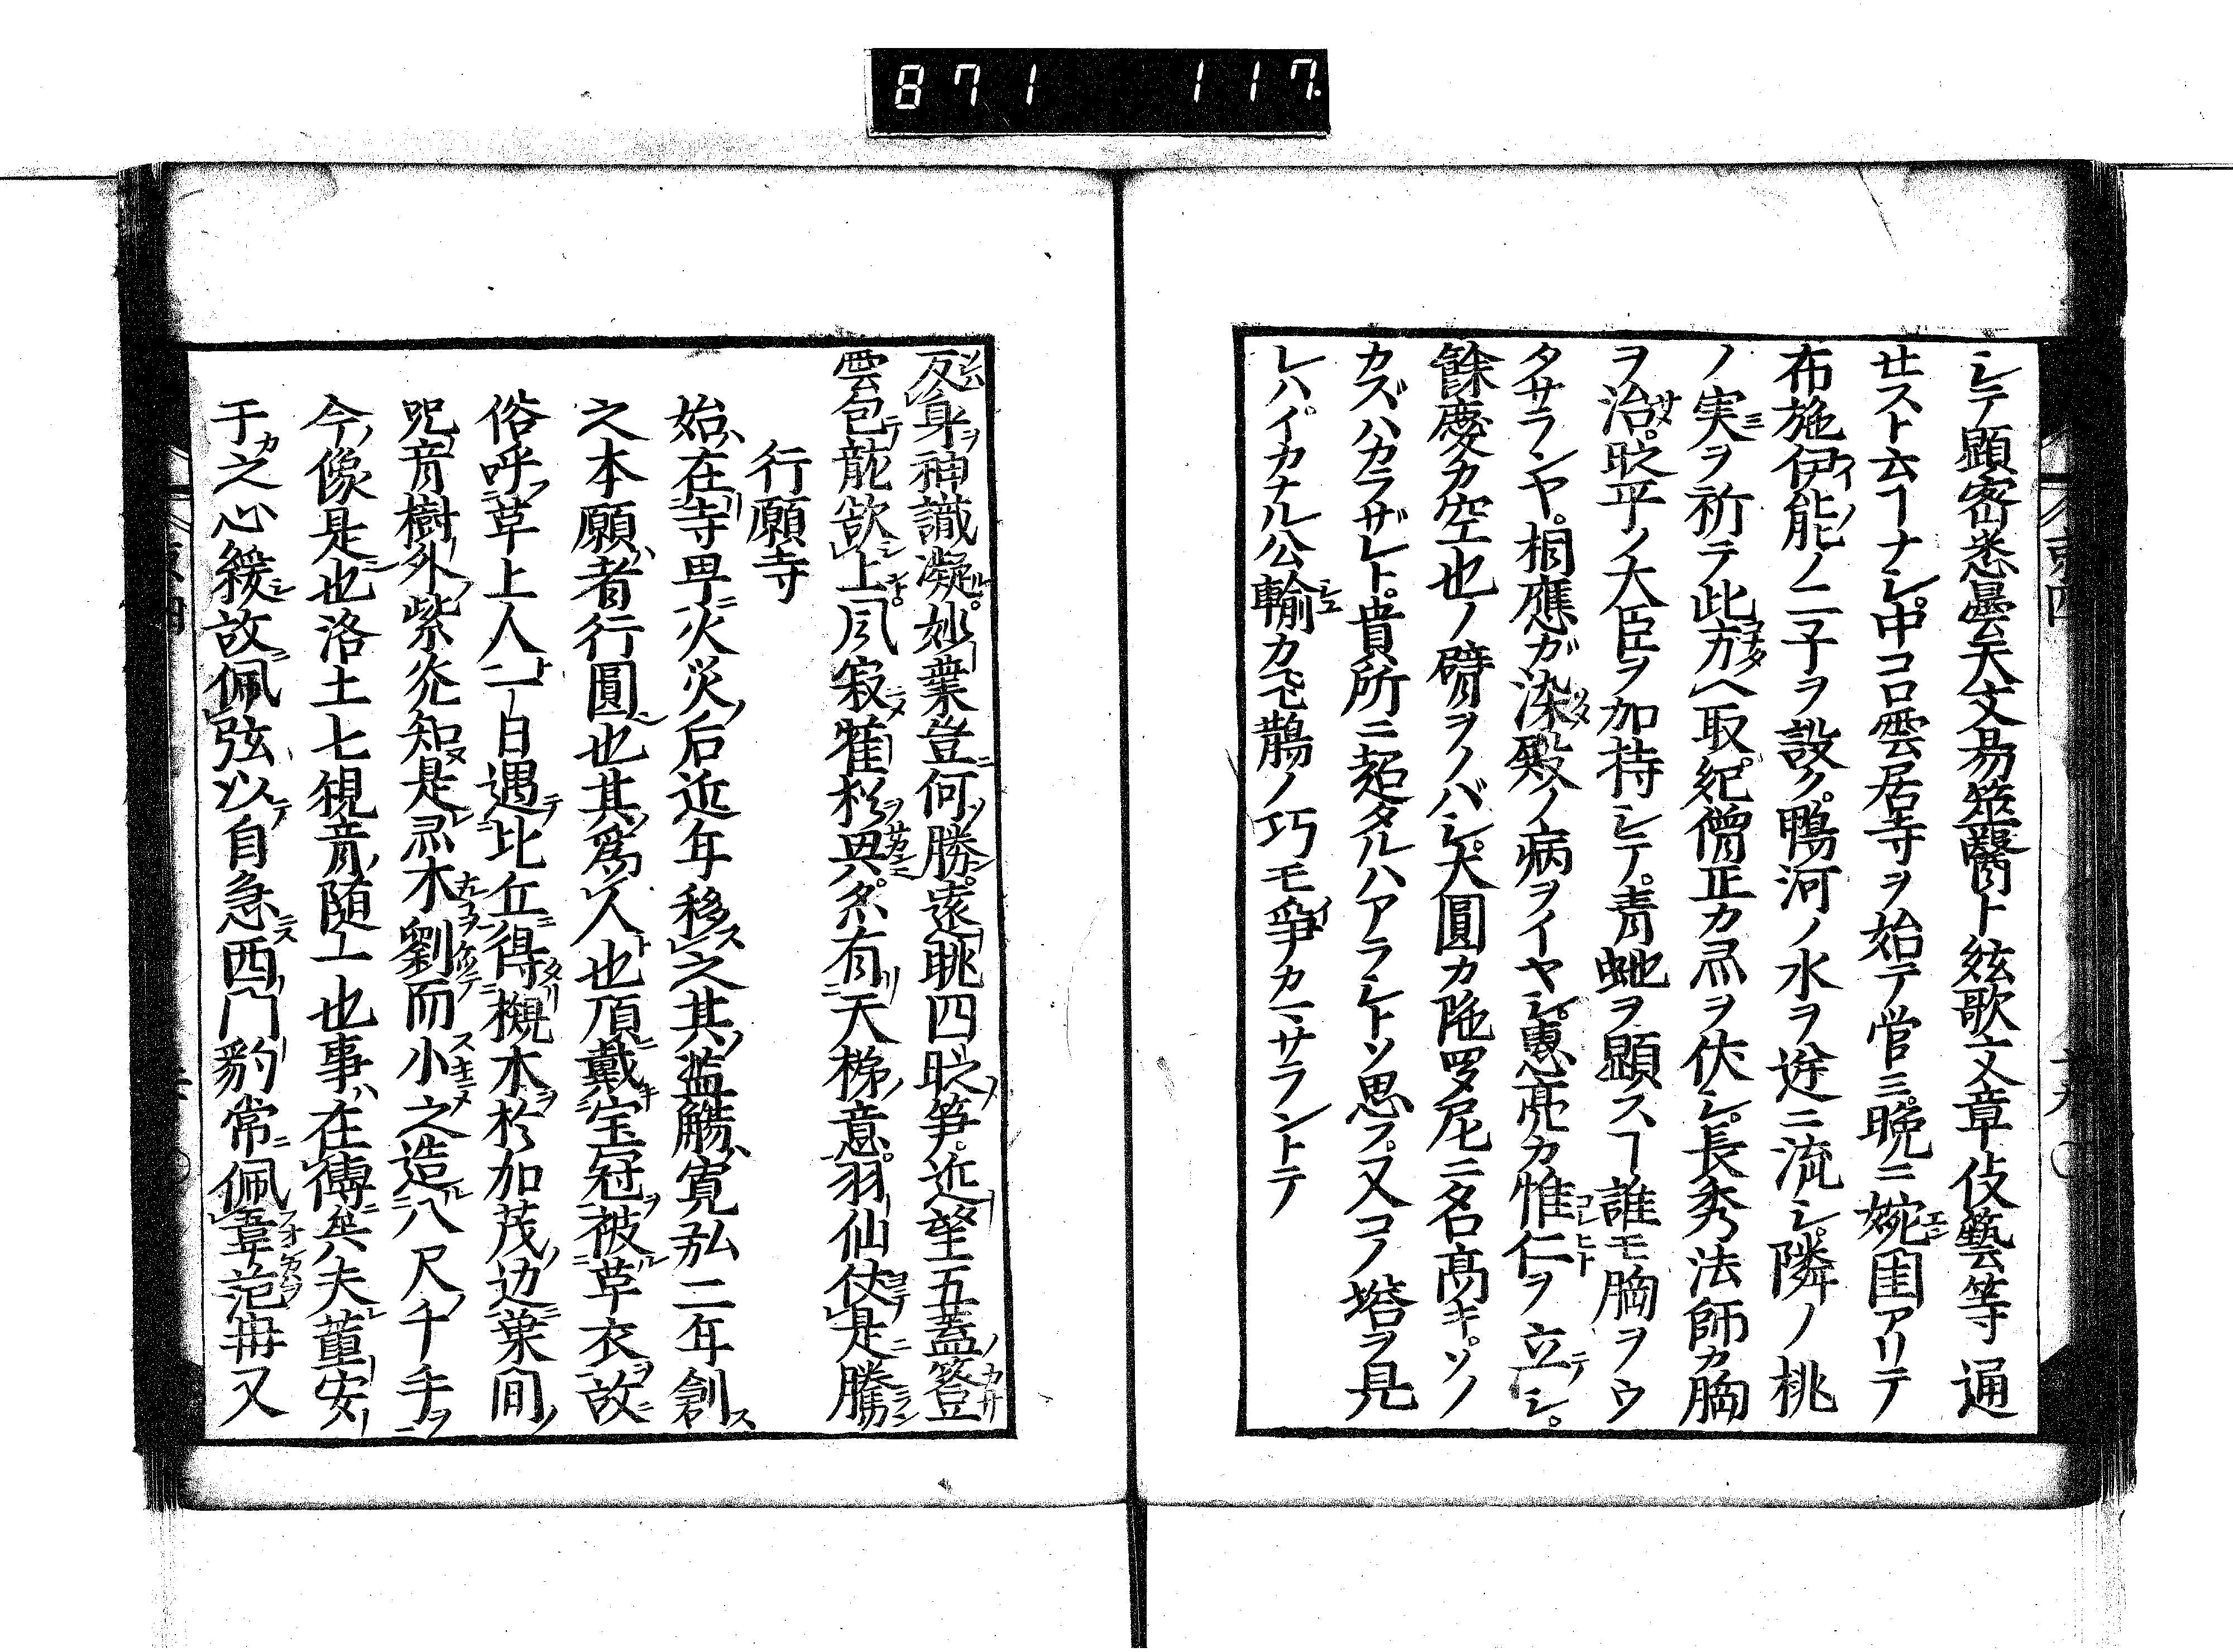 871 117.
シテ顕密悉曇天文易筮醫ト絃歌文章伎藝等通
せスト云ヿナシ。中コロ雲居寺ヲ始テ営ミ。晩ニ婉国アリテ
布施伊能ノ二子ヲ設ク。鴨河ノ水ヲ逆ニ流シ。隣ノ桃
ノ実ヲ祈テ此方ヘ取。紀僧正カ㷔ヲ伏シ。長秀法師カ胸
ヲ治。時平ノ大臣ヲ加持シテ。青虵ヲ顕スヿ誰モ胸ヲウ
タサランヤ。相應ガ染殿ノ病ヲイヤシ。惠亮カ惟仁ヲ立シ。
餘慶カ空也ノ臂ヲノバシ。大圓カ陁羅尼ニ名高キ。ソノ
カズハカラザレト。貴所ニ超タルハアラシトソ思フ。又コノ塔ヲ見
レハ。イカナル公輸カ飛鵲ノ巧モ爭カマサラントテ
反身神識凝。妙業登何勝。遠眺四眇笋。近望五蓋簦
雲包龍欲上。風寂隺於典。糸有天梯意。羽仙伏是騰
行願寺
始在寺畢火災后近年移之其濫觴寛弘二年創
之本願者行圓也其為人也頂戴宝冠被草衣故
俗呼草上人一日遇比丘得槻木於加茂辺葉間
咒音樹外紫光知是㷔木劉而小之造八尺千手
今像是也洛土七観音随一也事在傳矣夫董安
于之心緩故佩弦以自急西門豹常佩韋范冉又